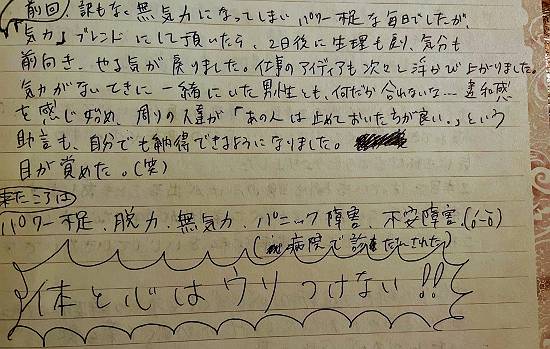 前回、訳もなく無気力になってしまいパワー不足な毎日でしたが、
「気力」ブレンドにして頂いたら、2日後に生理も戻り、気分も
前向き、やる気が戻りました。仕事のアイディアも次々と浮かび上がりました。
気力がないてきに一緒にいた男性とも、何だか合わないな…違和感
を感じ始め、周りの人達が「あの人は止めておいたらが良い。」という
助言も、自分でも納得できるようになりました。
目が覚めた。(笑)
来たころは
パワー不足、脱力、無気力、パニック障害、不安障害(6-6)
(病院で診だんされた)
体と心はウソつけない!!